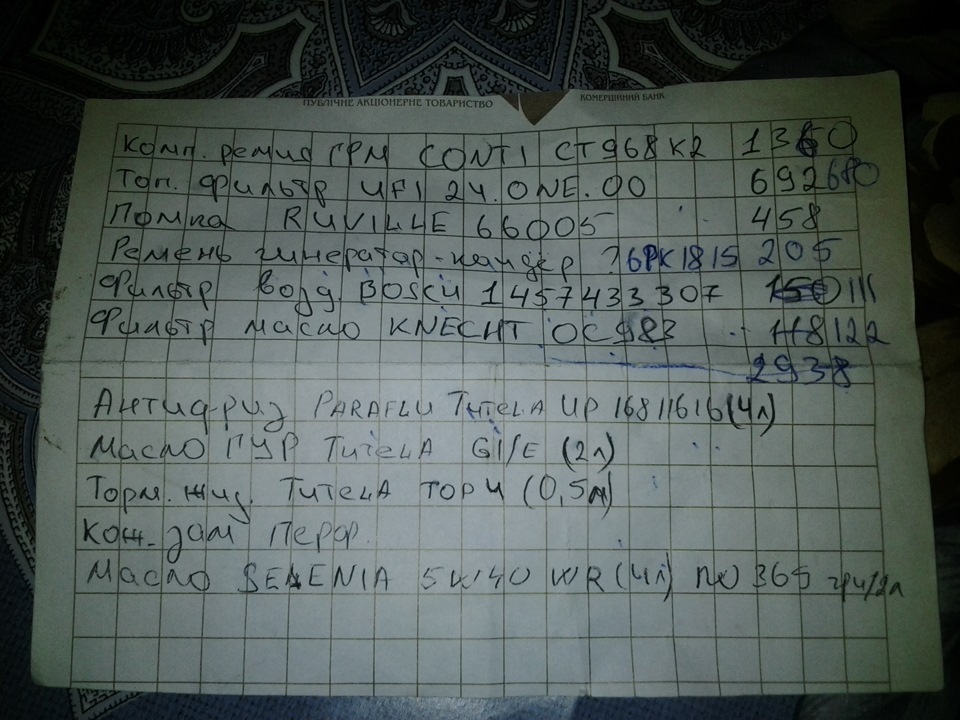 ПУБЛІЧНЕ АКЦІОНЕРНЕ ТОВАРИСТВО КОМЕРЦІЙНИЙ БАНК
Комп. ремня ГРМ CONTI CT968K2 1360
Топ. фильтр UFI 24.ONE.00 692 680
Помпа RUVILLE 66005 458
Ремень гинератор-кандер ? 6PK1815 205
Фильтр возд. BOSCH 1457433307 150 111
Фильтр масло KNECHT OC983 118 122
2938
Антифриз PARAFLU TUTELA UP 16811616 (4л)
Масло ГУР TUTELA GI/E (2л)
Торм. жид. TUTELA TOP 4 (0,5л)
Кож. зам Перф.
Масло SELENIA 5W40 WR (4л) по 365 грн/2л